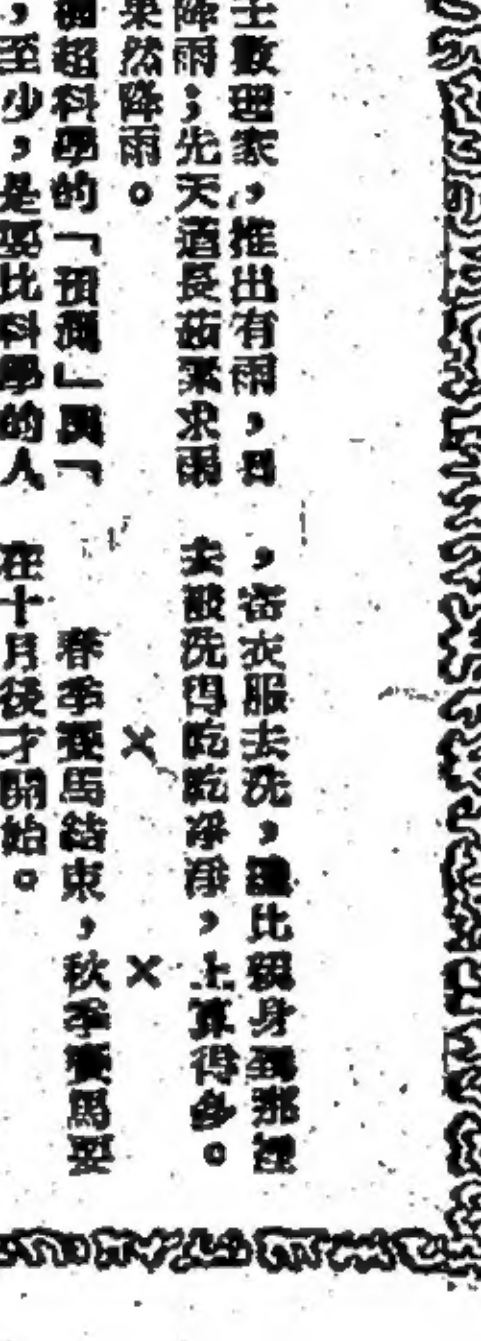 士數理家，推出有雨，且
降雨；先天道長茹素求雨
果然降雨。
超科學的「預測」與「
，至少，是要比科學的人
，寄衣服去洗，還比親身到那裡
去被洗得乾乾淨淨，上算得多。
×　×
春季賽馬結束，秋季賽馬要
在十月後才開始。